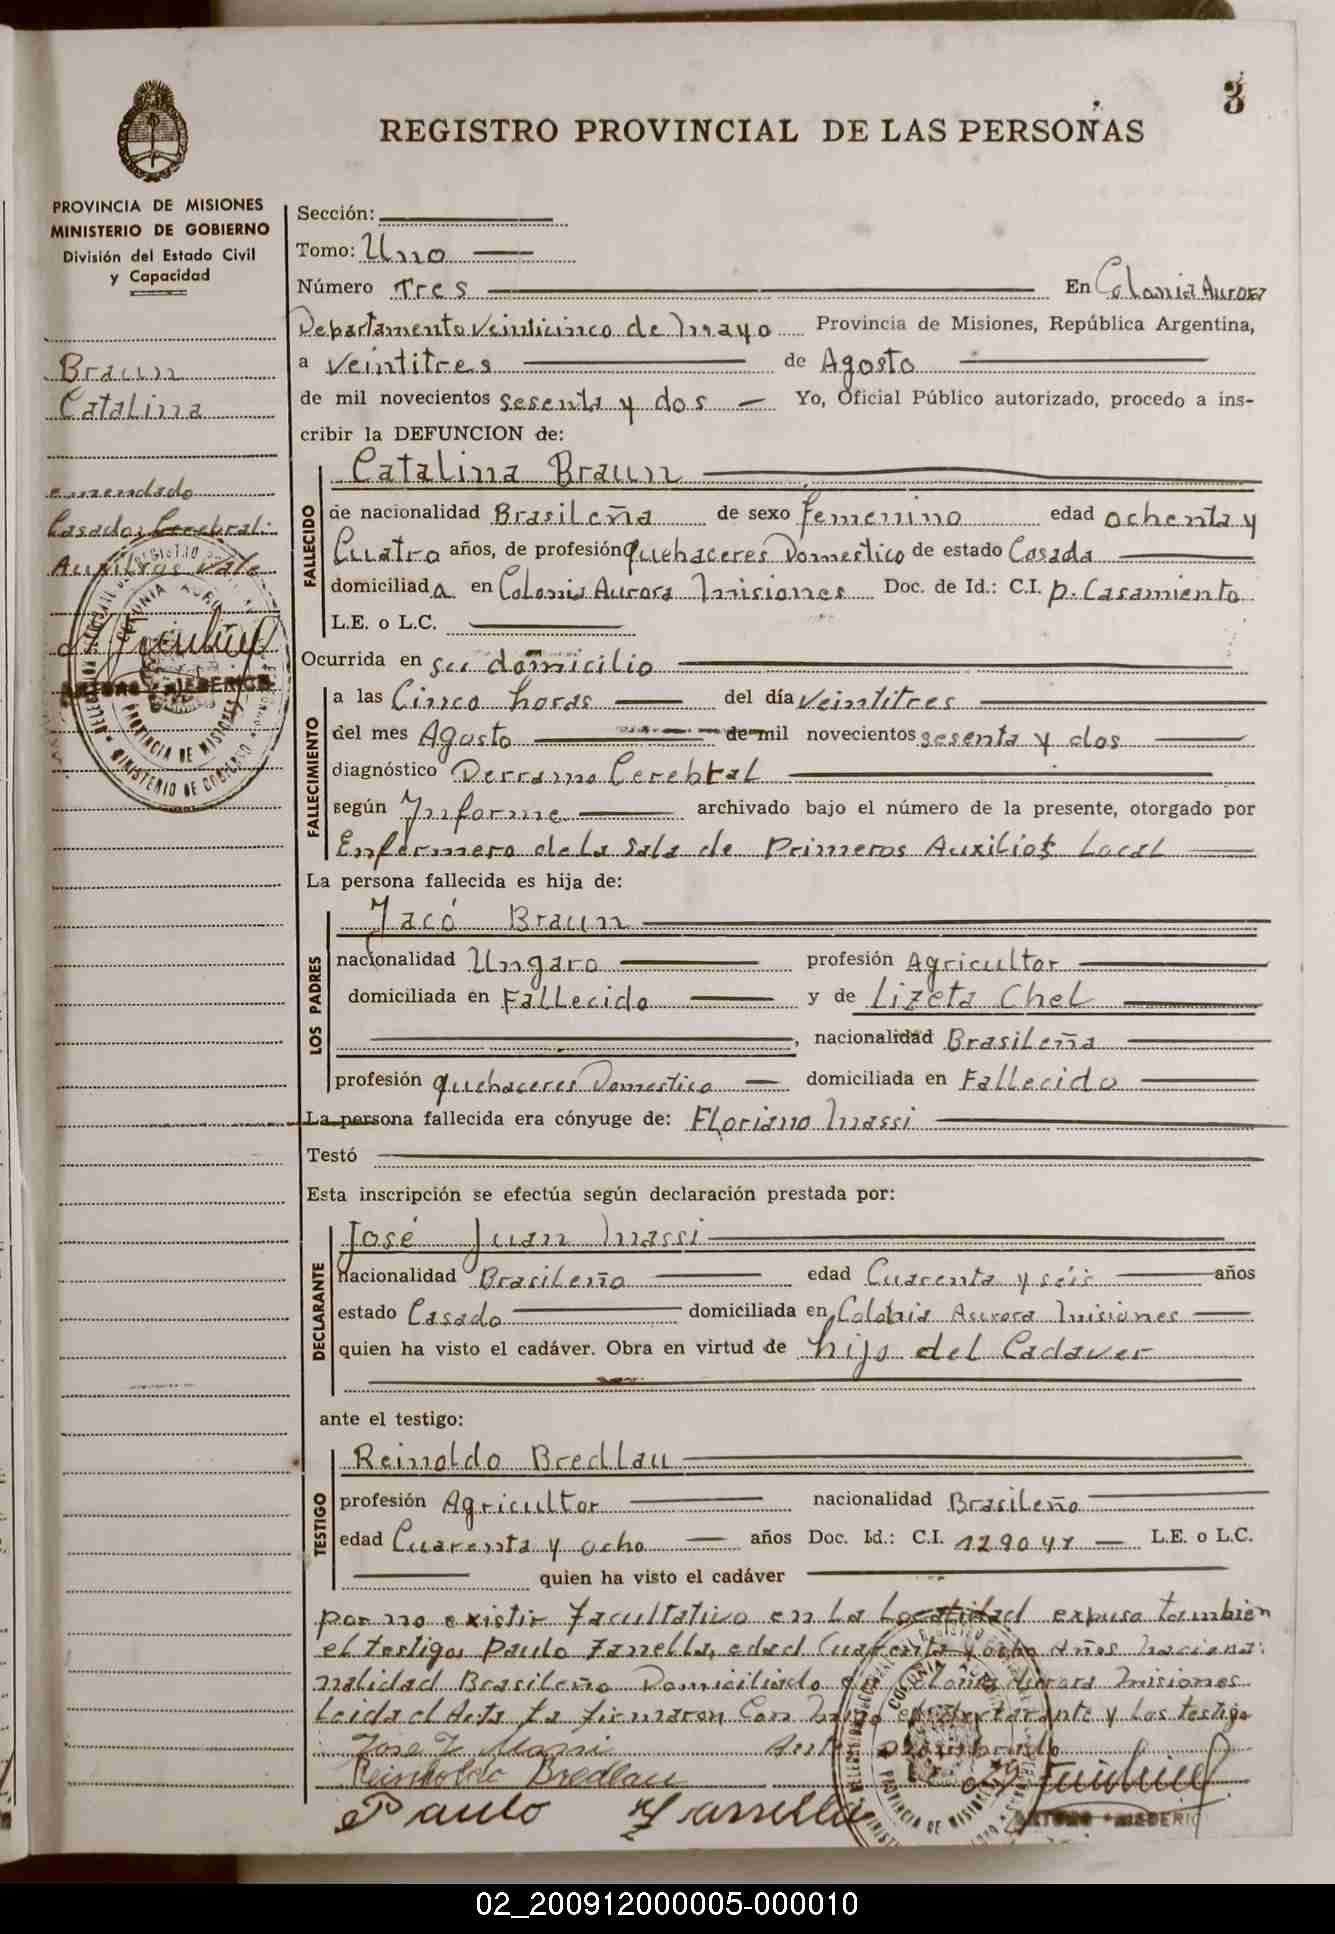 3
REGISTRO PROVINCIAL DE LAS PERSONAS
PROVINCIA DE MISIONES
MINISTERIO DE GOBIERNO
División del Estado Civil
y Capacidad
Braun
Catalina
enmendado
Casada; Cerebral:
Auxilios Vale
COLONIA AURORA
PROVINCIA DE MISIONES
MINISTERIO DE GOBIERNO
Sección:
Tomo: Uno
Número Tres En Colonia Aurora
Departamento Veinticinco de Mayo Provincia de Misiones, República Argentina,
a veintitres de Agosto
de mil novecientos sesenta y dos Yo, Oficial Público autorizado, procedo a ins-
cribir la DEFUNCION de:
FALLECIDO
Catalina Braun
de nacionalidad Brasileña de sexo femenino edad ochenta y
Cuatro años, de profesión quehaceres Domestico de estado Casada
domiciliada en Colonia Aurora Misiones Doc. de Id.: C.I. p. Casamiento
L.E. o L.C.
Ocurrida en su domicilio
FALLECIMIENTO
a las Cinco horas del día veintitres
del mes Agosto de mil novecientos sesenta y dos
diagnóstico Derrame Cerebral
según Informe archivado bajo el número de la presente, otorgado por
Enfermero de la Sala de Primeros Auxilios Local
La persona fallecida es hija de:
LOS PADRES
Jacó Braun
nacionalidad Ungaro profesión Agricultor
domiciliada en Fallecido y de Lizeta Chel
, nacionalidad Brasileña
profesión quehaceres Domestico domiciliada en Fallecido
La persona fallecida era cónyuge de: Floriano Massi
Testó
Esta inscripción se efectúa según declaración prestada por:
DECLARANTE
José Juan Massi
nacionalidad Brasileño edad Cuarenta y séis años
estado Casado domiciliada en Colonia Aurora Misiones
quien ha visto el cadáver. Obra en virtud de hijo del Cadaver
ante el testigo:
TESTIGO
Reinoldo Bredlau
profesión Agricultor nacionalidad Brasileño
edad Cuarenta y ocho años Doc. Id.: C.I. 129047 L.E. o L.C.
quien ha visto el cadáver
por no existir facultativo en la Localidad expuso tambien
el testigo Paulo Zanella, edad Cuarenta y ocho Años naciona:
nalidad Brasileño Domiciliado en Colonia Aurora Misiones
Leida el Acta la firmaron Con migo el declarante y los testigo
Jose J Massi
Reinholdo Bredlau
Paulo Zanella
COLONIA AURORA
PROVINCIA DE MISIONES
02_200912000005-000010